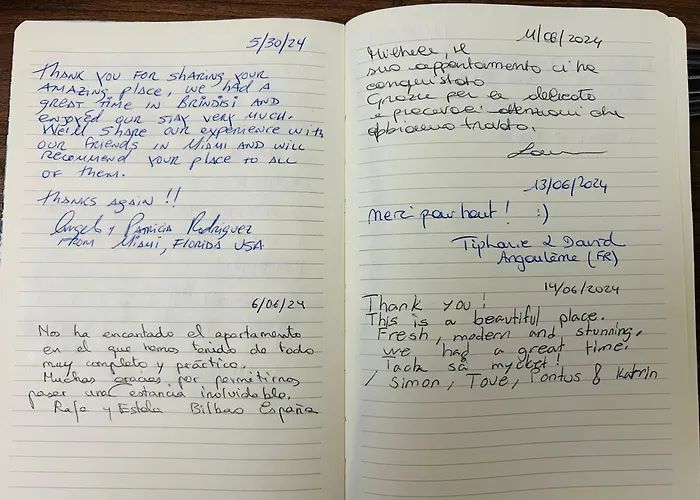 5/30/24
THANK YOU FOR SHARING YOUR
AMAZING PLACE, WE HAD A
GREAT TIME IN BRINDISI AND
ENJOYED OUR STAY VERY MUCH.
WE'LL SHARE OUR EXPERIENCE WITH
OUR FRIENDS IN MIAMI AND WILL
RECOMMEND YOUR PLACE TO ALL
OF THEM.
THANKS AGAIN !!
Angel y Patricia Rodriguez
FROM MIAMI, FLORIDA USA
6/06/24
Nos ha encantado el apartamento
en el que hemos tenido de todo
muy completo y práctico.
Muchas gracias por permitirnos
pasar una estancia inolvidable.
Rafa y Estela Bilbao España
11/06/2024
Michele, il
suo appartamento ci ha
conquistato
Grazie per le delicate
e piacevoli attenzioni che
abbiamo trovato.
13/06/2024
Merci pour tout ! :)
Tiphanie & David
Angoulême (FR)
14/06/2024
Thank you!
This is a beautiful place.
Fresh, modern and stunning,
we had a great time.
Tack så mycket!
/ Simon, Tove, Pontus & Katrin